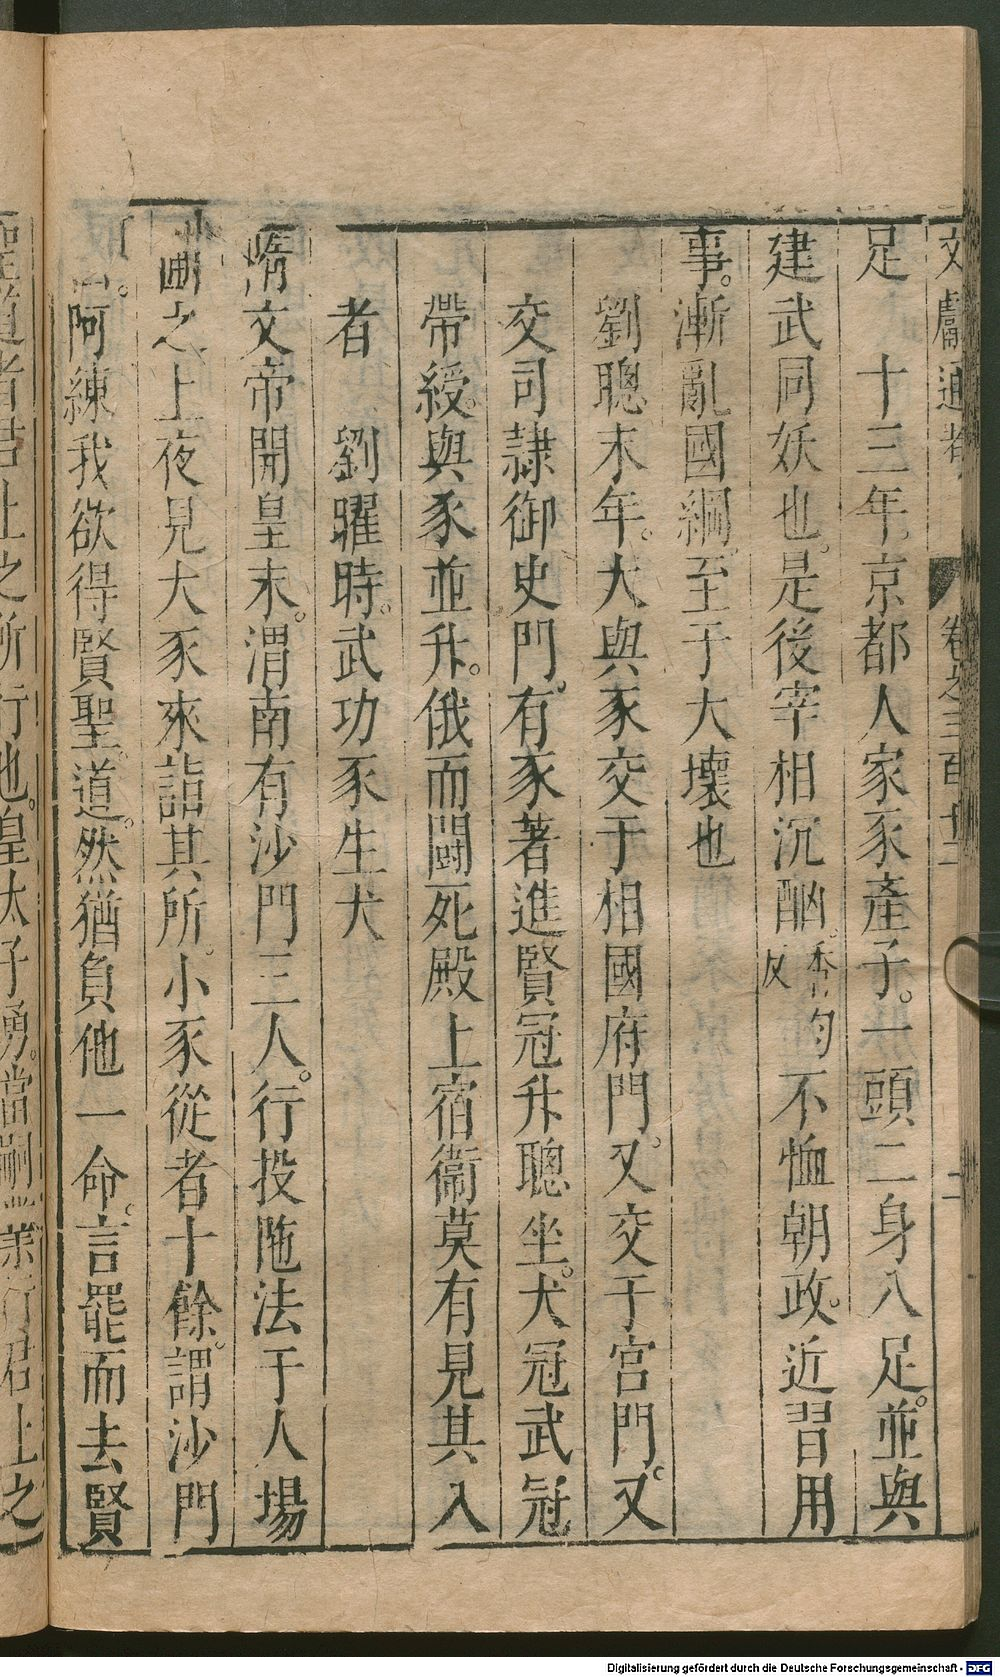 文獻通考 卷之三百十二 二
足　十三年。京都人家豕產子。一頭二身八足。並與
建武同妖也。是後宰相沉酗。香均反不恤朝政。近習用
事。漸亂國綱。至于大壞也
劉聰末年。犬與豕交于相國府門。又交于宮門。又
交司隷御史門。有豕著進賢冠升聰坐。犬冠武冠
帶綬。與豕並升。俄而鬪死殿上宿衞莫有見其入
者　劉曜時。武功豕生犬
隋文帝開皇末。渭南有沙門三人。行投陁法于人場
圃之上夜見大豕來詣其所。小豕從者十餘。謂沙門
曰。阿練我欲得賢聖道。然猶負他一命。言罷而去賢
聖道者君上之所行也。皇太子勇。當嗣業行君上之
Digitalisierung gefördert durch die Deutsche Forschungsgemeinschaft - DFG